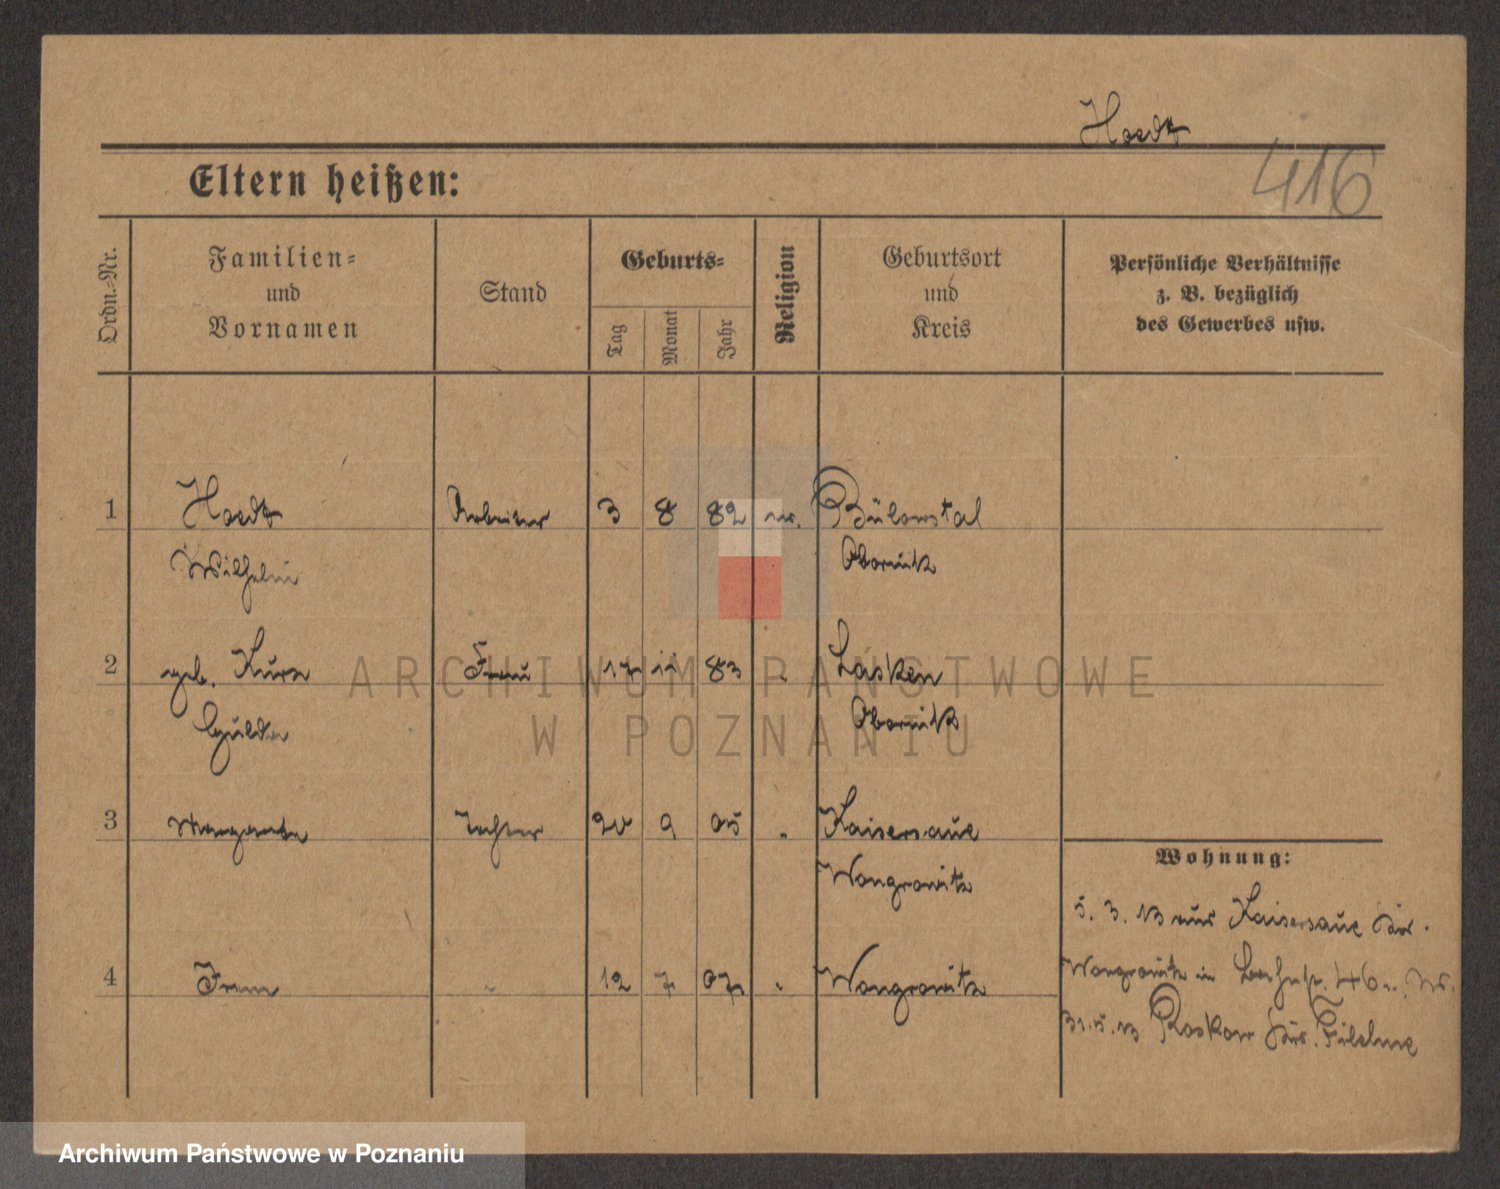 Hoedt
416
Eltern heißen:
Ordn.-Nr.
Familien-
und
Vornamen
Stand
Geburts-
Tag
Monat
Jahr
Religion
Geburtsort
und
Kreis
Persönliche Verhältnisse
z. B. bezüglich
des Gewerbes usw.
1 Hoedt Arbeiter 3 8 82 ev. Bülowstal
Wilhelm Obornik
2 geb. Kurz Frau 17 11 83 " Lasken
Hulda Obornik
3 Margarete Tochter 20 9 05 " Kaisersaue
Wongrowitz
4 " 12 7 07 " Wongrowitz
Wohnung:
5. 3. 13 aus Kaisersaue Kr.
Wongrowitz in 46
31. 5. 13 Roskow Krs. Filehne
ARCHIWUM PAŃSTWOWE
W POZNANIU
Archiwum Państwowe w Poznaniu